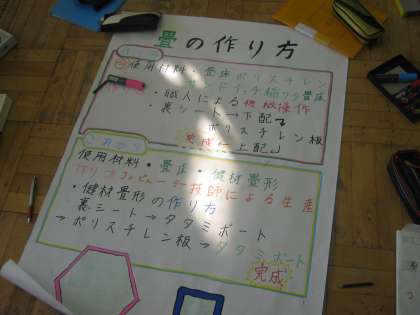 畳の作り方
使用材料・畳床ポリスチレン
サンドイッチ稲ワラ畳床
・職人による機械操作
・裏シート→下配
ポリスチレン板
完成←上配
これから
使用材料・畳床・健材畳形
作り コンピューター技師による生産
・健材畳形の作り方
裏シート→タタミボート
→ポリスチレン板→タタミボート
完成